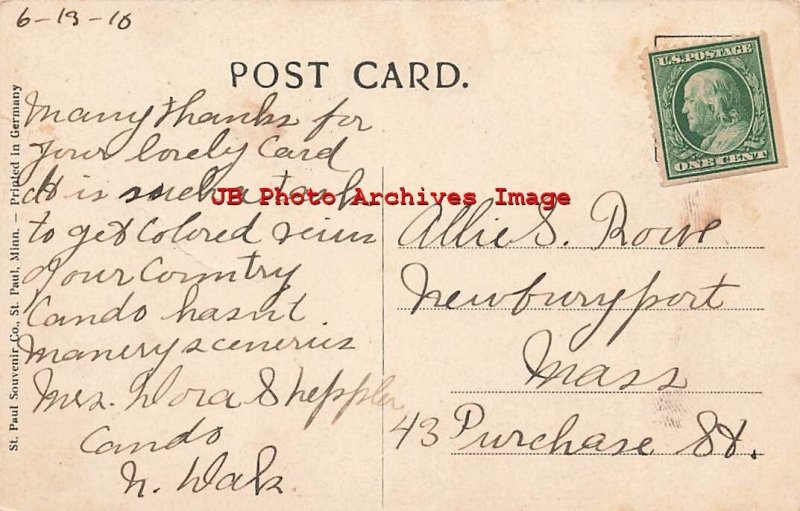 6-13-10
POST CARD.
U.S. POSTAGE
ONE CENT
Many thanks for
your lovely Card
It is such a task
to get Colored veiws
of our Country
Cando hasn't
manery sceneries
Mrs. Dora Sheppler
Cando
N. Dak
Allie S. Rowe
Newburyport
Mass
43 Purchase St.
St. Paul Souvenir Co., St. Paul, Minn. — Printed in Germany
JB Photo Archives Image